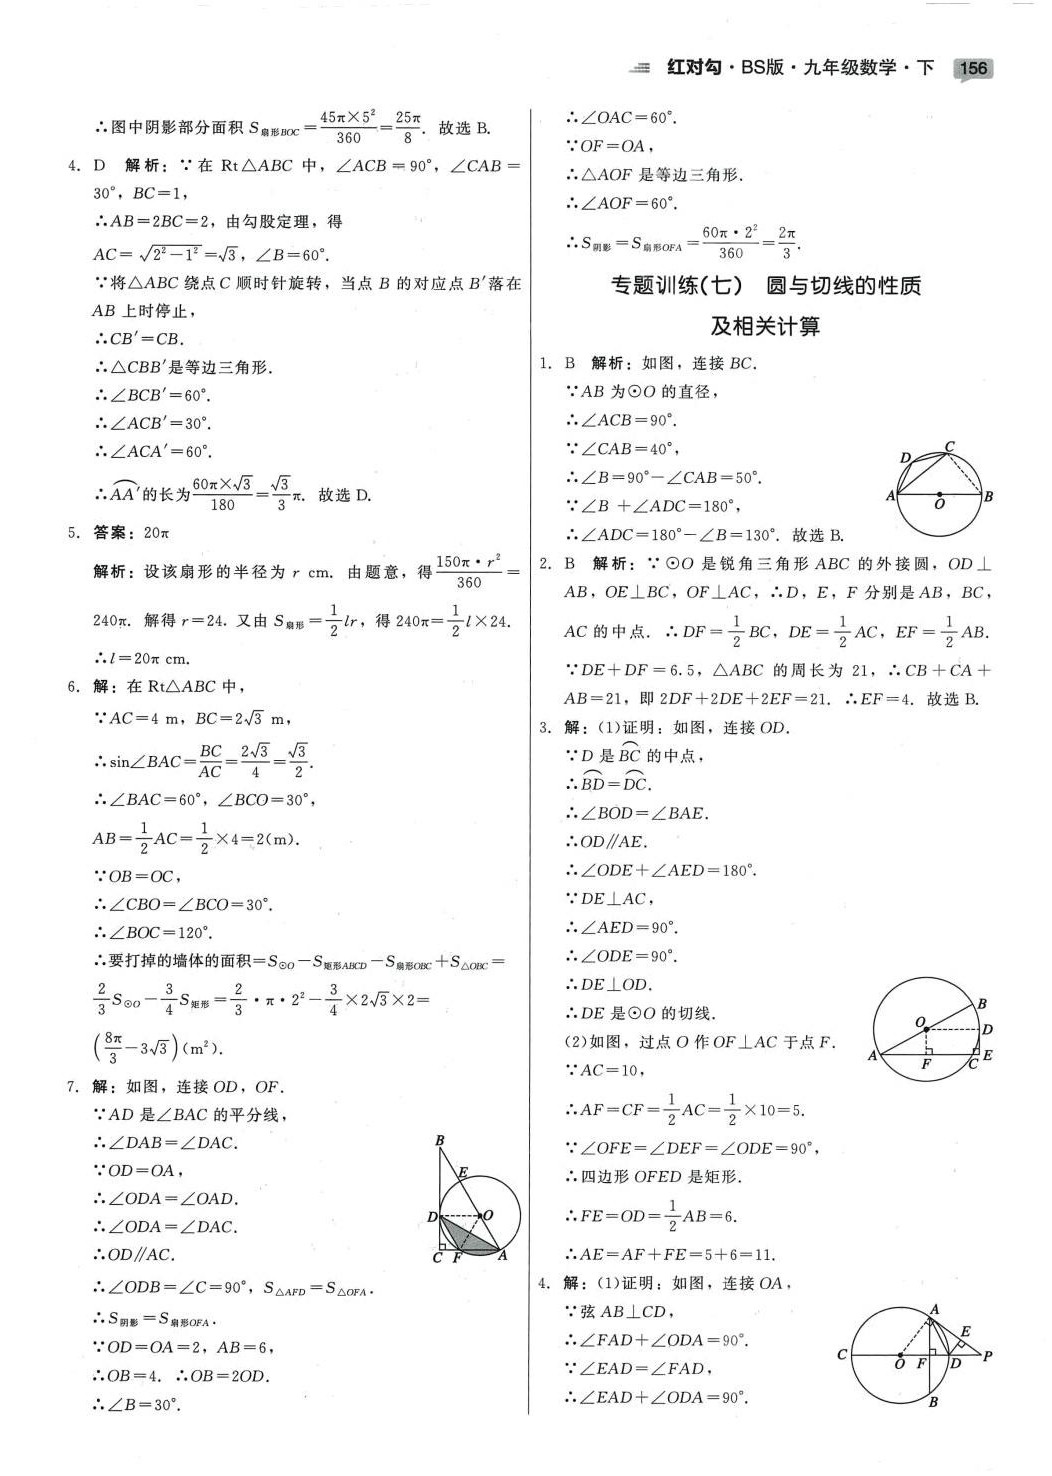 红对勾·BS版·九年级数学·下 156
∴图中阴影部分面积 S扇形BOC=45π×5²/360=25π/8. 故选 B.
4. D 解析：∵在 Rt△ABC 中，∠ACB=90°，∠CAB=
30°，BC=1，
∴AB=2BC=2，由勾股定理，得
AC=√(2²-1²)=√3，∠B=60°.
∵将△ABC 绕点 C 顺时针旋转，当点 B 的对应点 B′落在
AB 上时停止，
∴CB′=CB.
∴△CBB′是等边三角形.
∴∠BCB′=60°.
∴∠ACB′=30°.
∴∠ACA′=60°.
∴⌒AA′的长为60π×√3/180=√3/3π. 故选 D.
5. 答案：20π
解析：设该扇形的半径为 r cm. 由题意，得150π·r²/360=
240π. 解得 r=24. 又由 S扇形=1/2lr，得 240π=1/2l×24.
∴l=20π cm.
6. 解：在 Rt△ABC 中，
∵AC=4 m，BC=2√3 m，
∴sin∠BAC=BC/AC=2√3/4=√3/2.
∴∠BAC=60°，∠BCO=30°，
AB=1/2AC=1/2×4=2(m).
∵OB=OC，
∴∠CBO=∠BCO=30°.
∴∠BOC=120°.
∴要打掉的墙体的面积=S⊙O-S矩形ABCD-S扇形OBC+S△OBC=
2/3S⊙O-3/4S矩形=2/3·π·2²-3/4×2√3×2=
(8π/3-3√3)(m²).
7. 解：如图，连接 OD，OF.
∵AD 是∠BAC 的平分线，
∴∠DAB=∠DAC.
∵OD=OA，
∴∠ODA=∠OAD.
∴∠ODA=∠DAC.
∴OD∥AC.
∴∠ODB=∠C=90°，S△AFD=S△OFA.
∴S阴影=S扇形OFA.
∵OD=OA=2，AB=6，
∴OB=4. ∴OB=2OD.
∴∠B=30°.
B
E
D O
C F A
∴∠OAC=60°.
∵OF=OA，
∴△AOF 是等边三角形.
∴∠AOF=60°.
∴S阴影=S扇形OFA=60π·2²/360=2π/3.
专题训练(七) 圆与切线的性质
及相关计算
1. B 解析：如图，连接 BC.
∵AB 为⊙O 的直径，
∴∠ACB=90°.
∵∠CAB=40°，
∴∠B=90°-∠CAB=50°.
∵∠B+∠ADC=180°，
∴∠ADC=180°-∠B=130°. 故选 B.
D C
A O B
2. B 解析：∵⊙O 是锐角三角形 ABC 的外接圆，OD⊥
AB，OE⊥BC，OF⊥AC，∴D，E，F 分别是 AB，BC，
AC 的中点. ∴DF=1/2BC，DE=1/2AC，EF=1/2AB.
∵DE+DF=6.5，△ABC 的周长为 21，∴CB+CA+
AB=21，即 2DF+2DE+2EF=21. ∴EF=4. 故选 B.
3. 解：(1)证明：如图，连接 OD.
∵D 是⌒BC 的中点，
∴⌒BD=⌒DC.
∴∠BOD=∠BAE.
∴OD∥AE.
∴∠ODE+∠AED=180°.
∵DE⊥AC，
∴∠AED=90°.
∴∠ODE=90°.
∴DE⊥OD.
∴DE 是⊙O 的切线.
(2)如图，过点 O 作 OF⊥AC 于点 F.
∵AC=10，
∴AF=CF=1/2AC=1/2×10=5.
∵∠OFE=∠DEF=∠ODE=90°，
∴四边形 OFED 是矩形.
∴FE=OD=1/2AB=6.
∴AE=AF+FE=5+6=11.
B
O D
A F C E
4. 解：(1)证明：如图，连接 OA，
∵弦 AB⊥CD，
∴∠FAD+∠ODA=90°.
∵∠EAD=∠FAD，
∴∠EAD+∠ODA=90°.
A
E
C O F D P
B